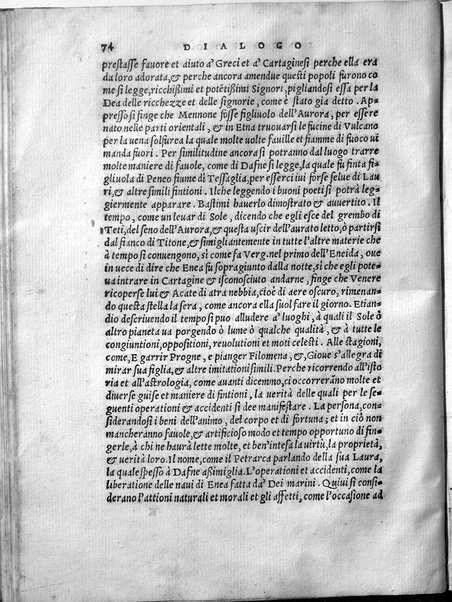 74 DIALOGO
prestasse fauore et aiuto a' Greci et a' Cartaginesi perche ella era
da loro adorata, & perche ancora amendue questi popoli furono co
me si legge, ricchißimi et potẽtißimi Signori, pigliandosi essa per la
Dea delle ricchezze et delle signorie, come è stato gia detto. Ap-
presso si finge che Mennone fosse figliuolo dell'Aurora, per essere
nato nelle parti orientali, & in Etna trouarsi le fucine di Vulcano
per la uena solfurea la quale molte uolte fauille et fiamme di fuoco ui
manda fuori. Per similitudine ancora si potranno dal luogo trarre
molte maniere di fauole, come di Dafne si legge, la quale fu finta fi-
gliuola di Peneo fiume di Tessaglia, per esserci iui forse selue di Lau
ri, & altre simili fintioni. Ilche leggendo i buoni poeti si potrà leg-
giermente apparare. Bastimi hauerlo dimostrato & auuertito. Il
tempo, come un leuar di Sole, dicendo che egli esce del grembo di
Teti, del seno dell'Aurora, & questa uscir dell'aurato letto, ò partirsi
dal fianco di Titone, & simigliantemente in tutte l'altre materie che
à tempo si conuengono, sì come fa Verg. nel primo dell'Eneida, oue
in uece di dire che Enea fu sopragiunto dalla notte, sì che egli pote-
ua intrare in Cartagine & isconosciuto andarne, finge che Venere
ricoperse lui & Acate di atra nebbia, cioè di aere oscuro, rimenan-
do questa stella la sera, come ancora ella suol fare il giorno. Etian
dio descriuendo il tempo si puo alludere a' luoghi, à quali il Sole ò
altro pianeta ua porgendo ò lume ò qualche qualità, & à tutte le
congiuntioni, oppositioni, reuolutioni et moti celesti. Alle stagioni,
come, E garrir Progne, e pianger Filomena, &, Gioue s'allegra di
mirar sua figlia, & altre imitationi simili. Perche ricorrendo all'isto
ria et all'astrologia, come auanti dicemmo, ci occorerãno molte et
diuerse guise et maniere di fintioni, la uerità delle quali per le se-
guenti operationi & accidenti si dee manifestare. La persona, con-
siderandosi i beni dell'animo, del corpo et di fortuna; et in ciò non
mancheranno fauole, & artificioso modo et tempo opportuno di fin-
gerle, à chi ne haurà lette molte, et ben'intesa la uirtù, la proprietà,
& uerità loro. Il nome, come il Petrarca parlando della sua Laura,
la quale spesso à Dafne aßimiglia. L'operationi et accidenti, come la
liberatione delle naui di Enea fatta da' Dei marini. Quiui si consi-
derano l'attioni naturali et morali et gli affetti, come l'occasione ad